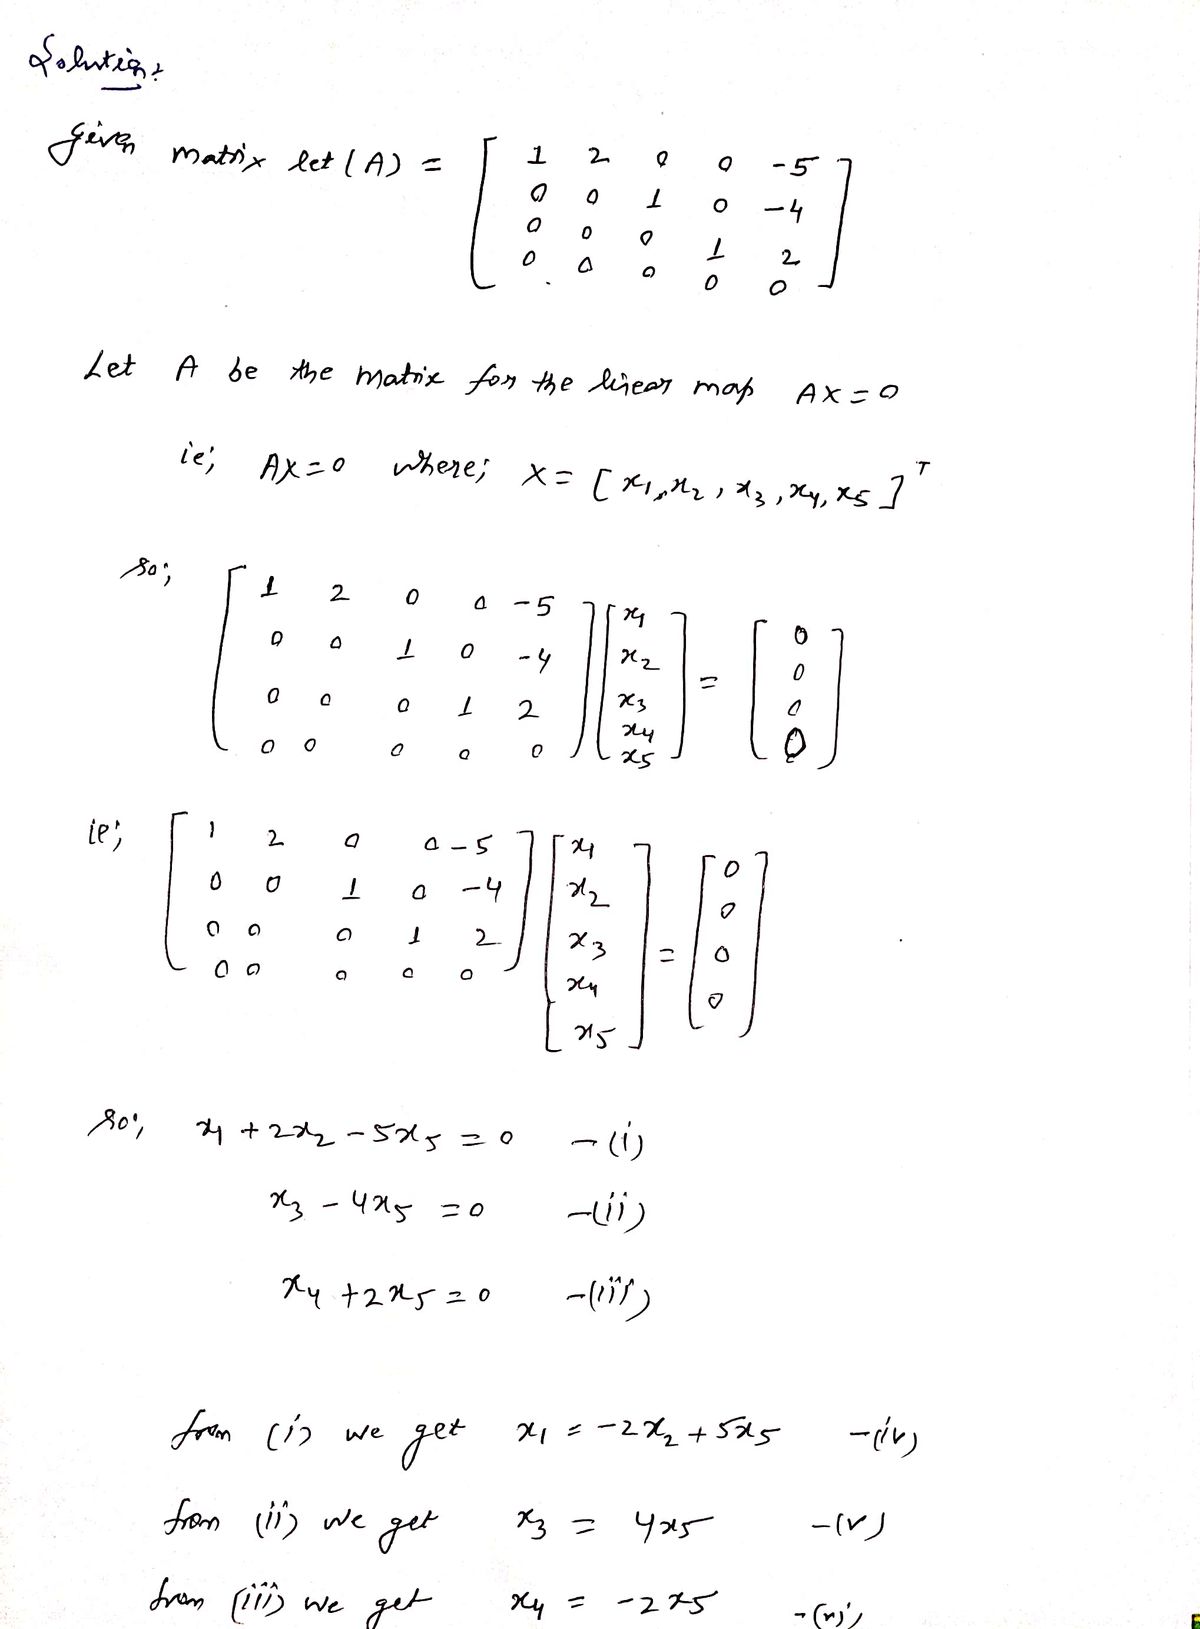 Solution:
Given matrix let (A) = [ 1 2 0 0 -5
0 0 1 0 -4
0 0 0 1 2
0 0 0 0 0 ]
Let A be the matrix for the linear map AX = 0
ie; AX = 0 where; X = [ x1, x2, x3, x4, x5 ]^T
so; [ 1 2 0 0 -5 ] [ x1 ] = [ 0 ]
0 0 1 0 -4 x2 0
0 0 0 1 2 x3 0
0 0 0 0 0 x4 0
x5
ie; [ 1 2 0 0 -5 ] [ x1 ] = [ 0 ]
0 0 1 0 -4 x2 0
0 0 0 1 2 x3 0
0 0 0 0 0 x4 0
x5
so; x1 + 2x2 - 5x5 = 0 - (i)
x3 - 4x5 = 0 - (ii)
x4 + 2x5 = 0 - (iii)
from (i) we get x1 = -2x2 + 5x5 - (iv)
from (ii) we get x3 = 4x5 - (v)
from (iii) we get x4 = -2x5 - (vi)